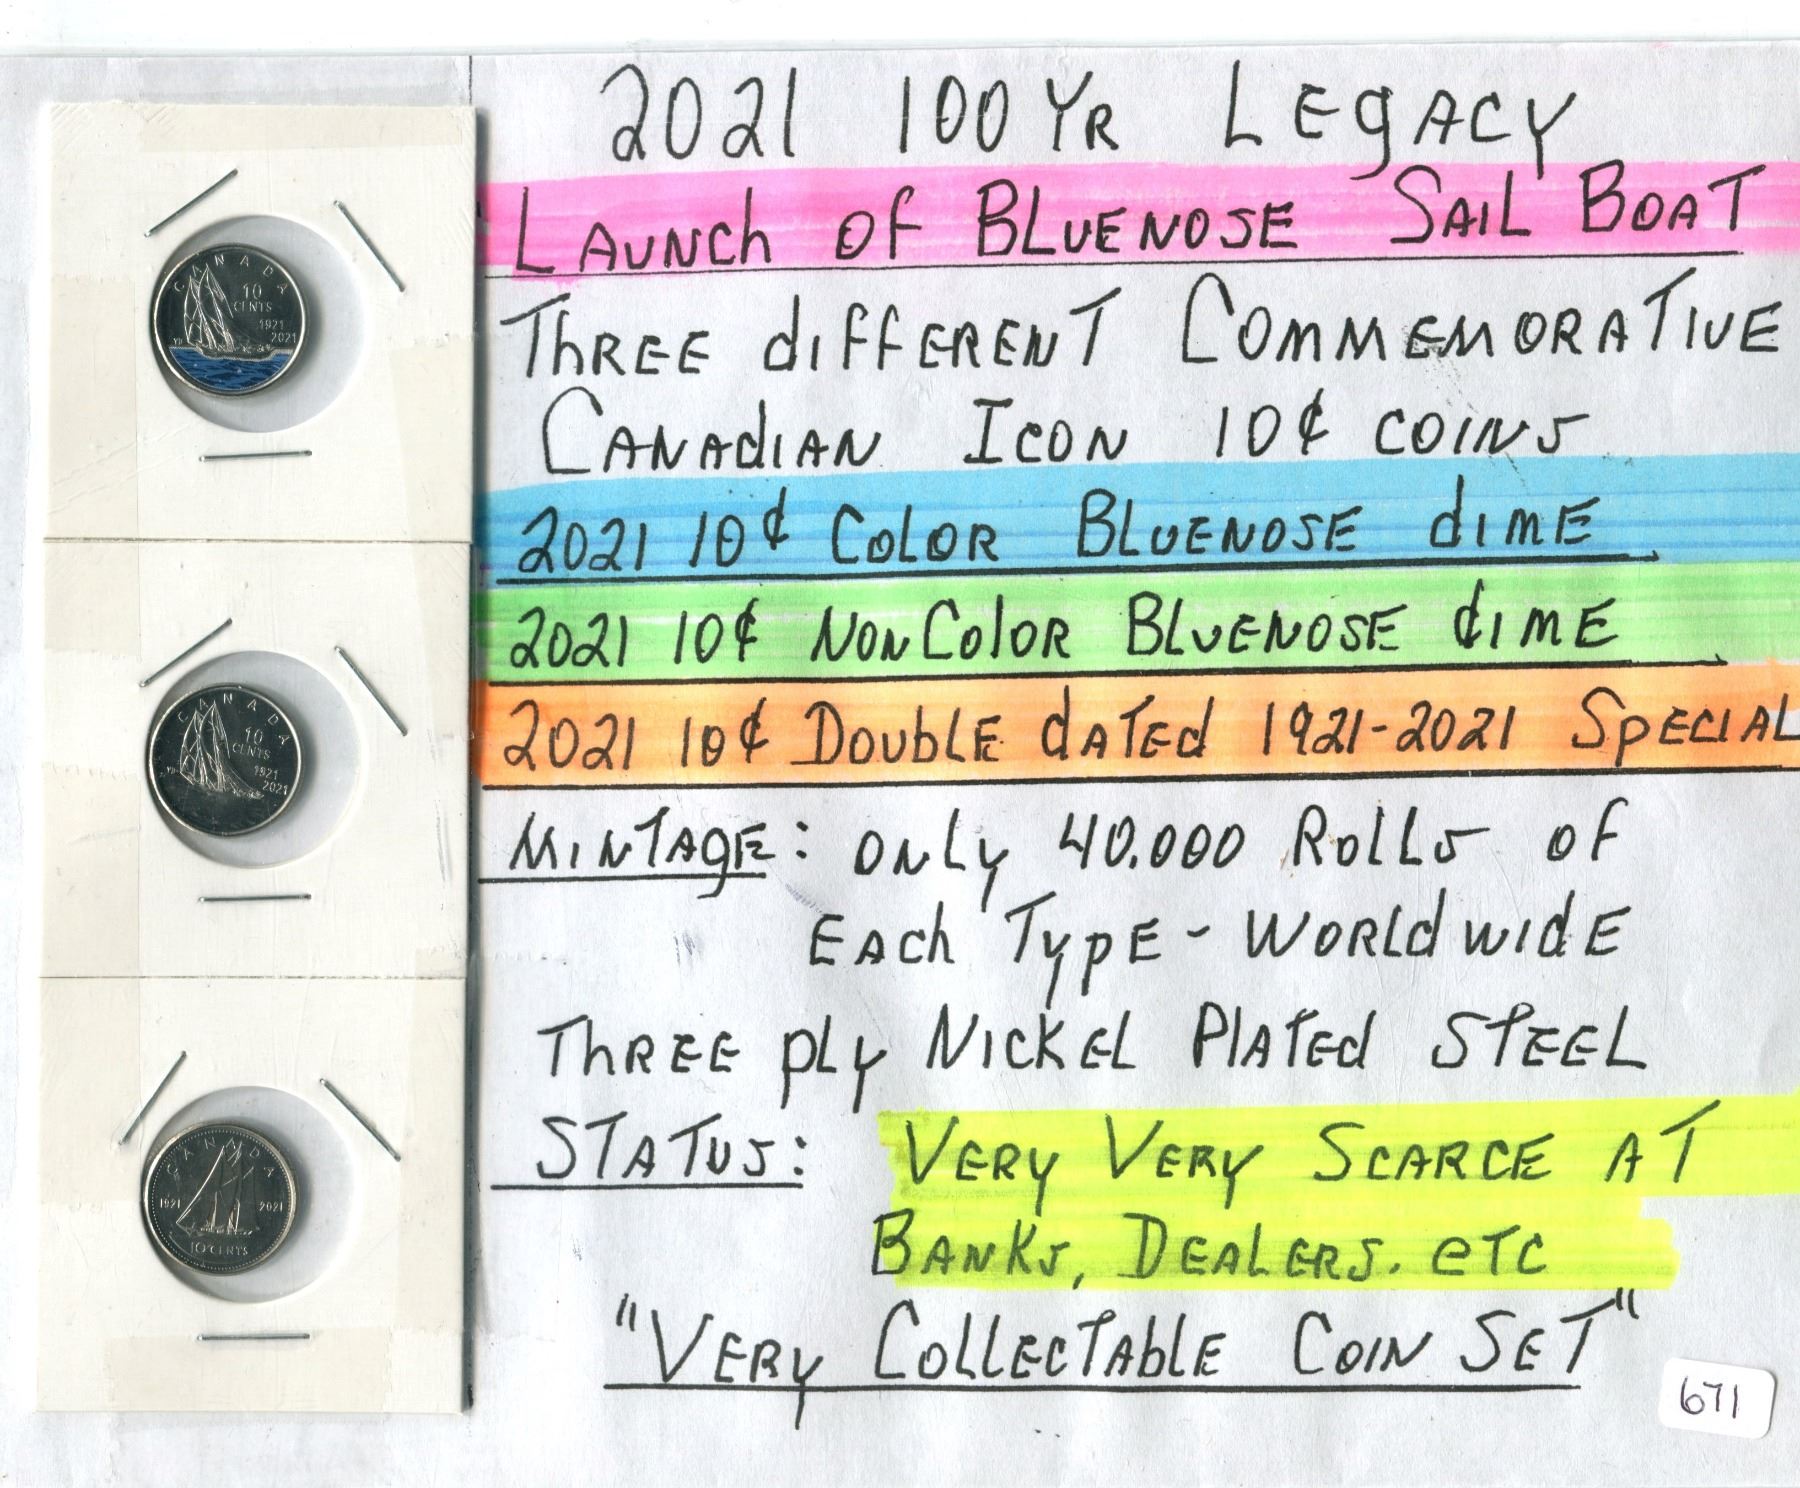 2021 100 YR LEGACY
LAUNCH OF BLUENOSE SAIL BOAT
THREE dIFFERENT COMMEMORATIVE
CANADIAN ICON 10¢ COINS
2021 10¢ COLOR BLUENOSE dIME
2021 10¢ NON COLOR BLUENOSE dIME
2021 10¢ DOUBLE dATEd 1921-2021 SPECIAL
MINTAGE: ONLY 40,000 ROLLS OF
EACH TYPE - WORLDWIDE
THREE PLY NICKEL PLATED STEEL
STATUS: VERY VERY SCARCE AT
BANKS, DEALERS. ETC
"VERY COLLECTABLE COIN SET"
671
CANADA
10
CENTS
1921
2021
CANADA
10
CENTS
1921
2021
CANADA
1921 2021
10 CENTS